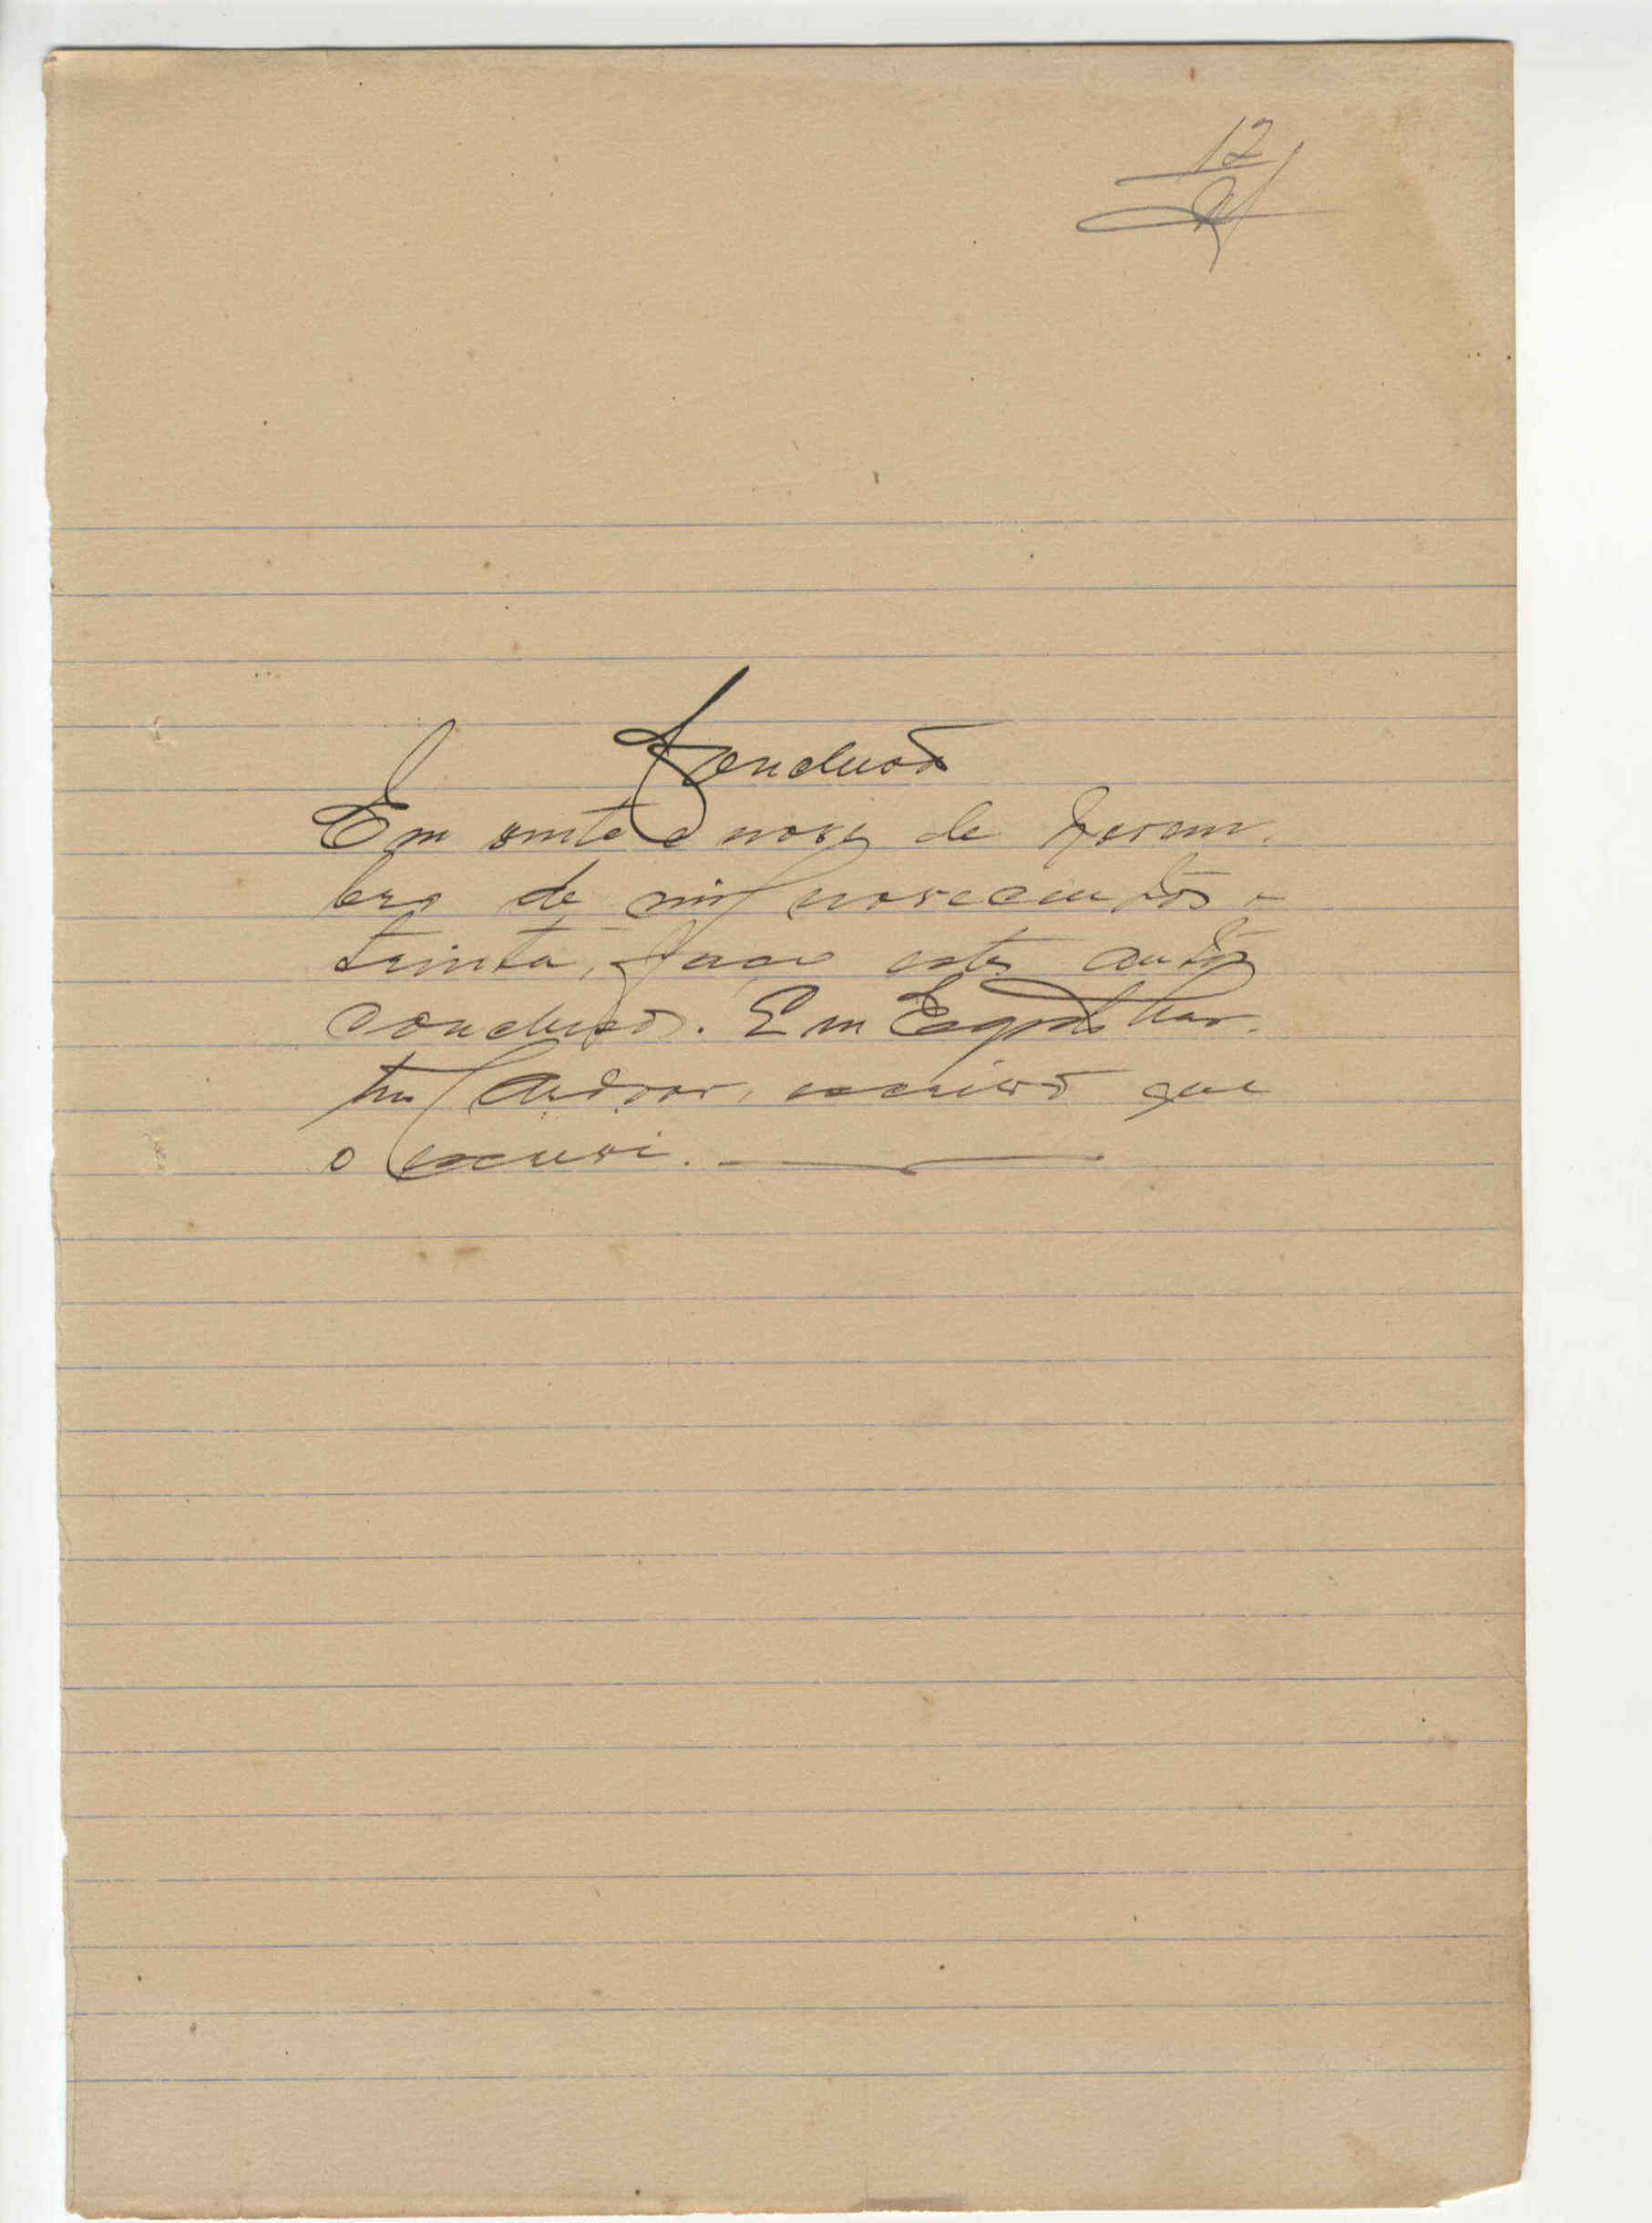 12
Conclusão
Em vinte e nove de Novem-
bro de mil novecentos e
trinta, faço estes autos
conclusos. Eu
escrivão que
o escrevi.